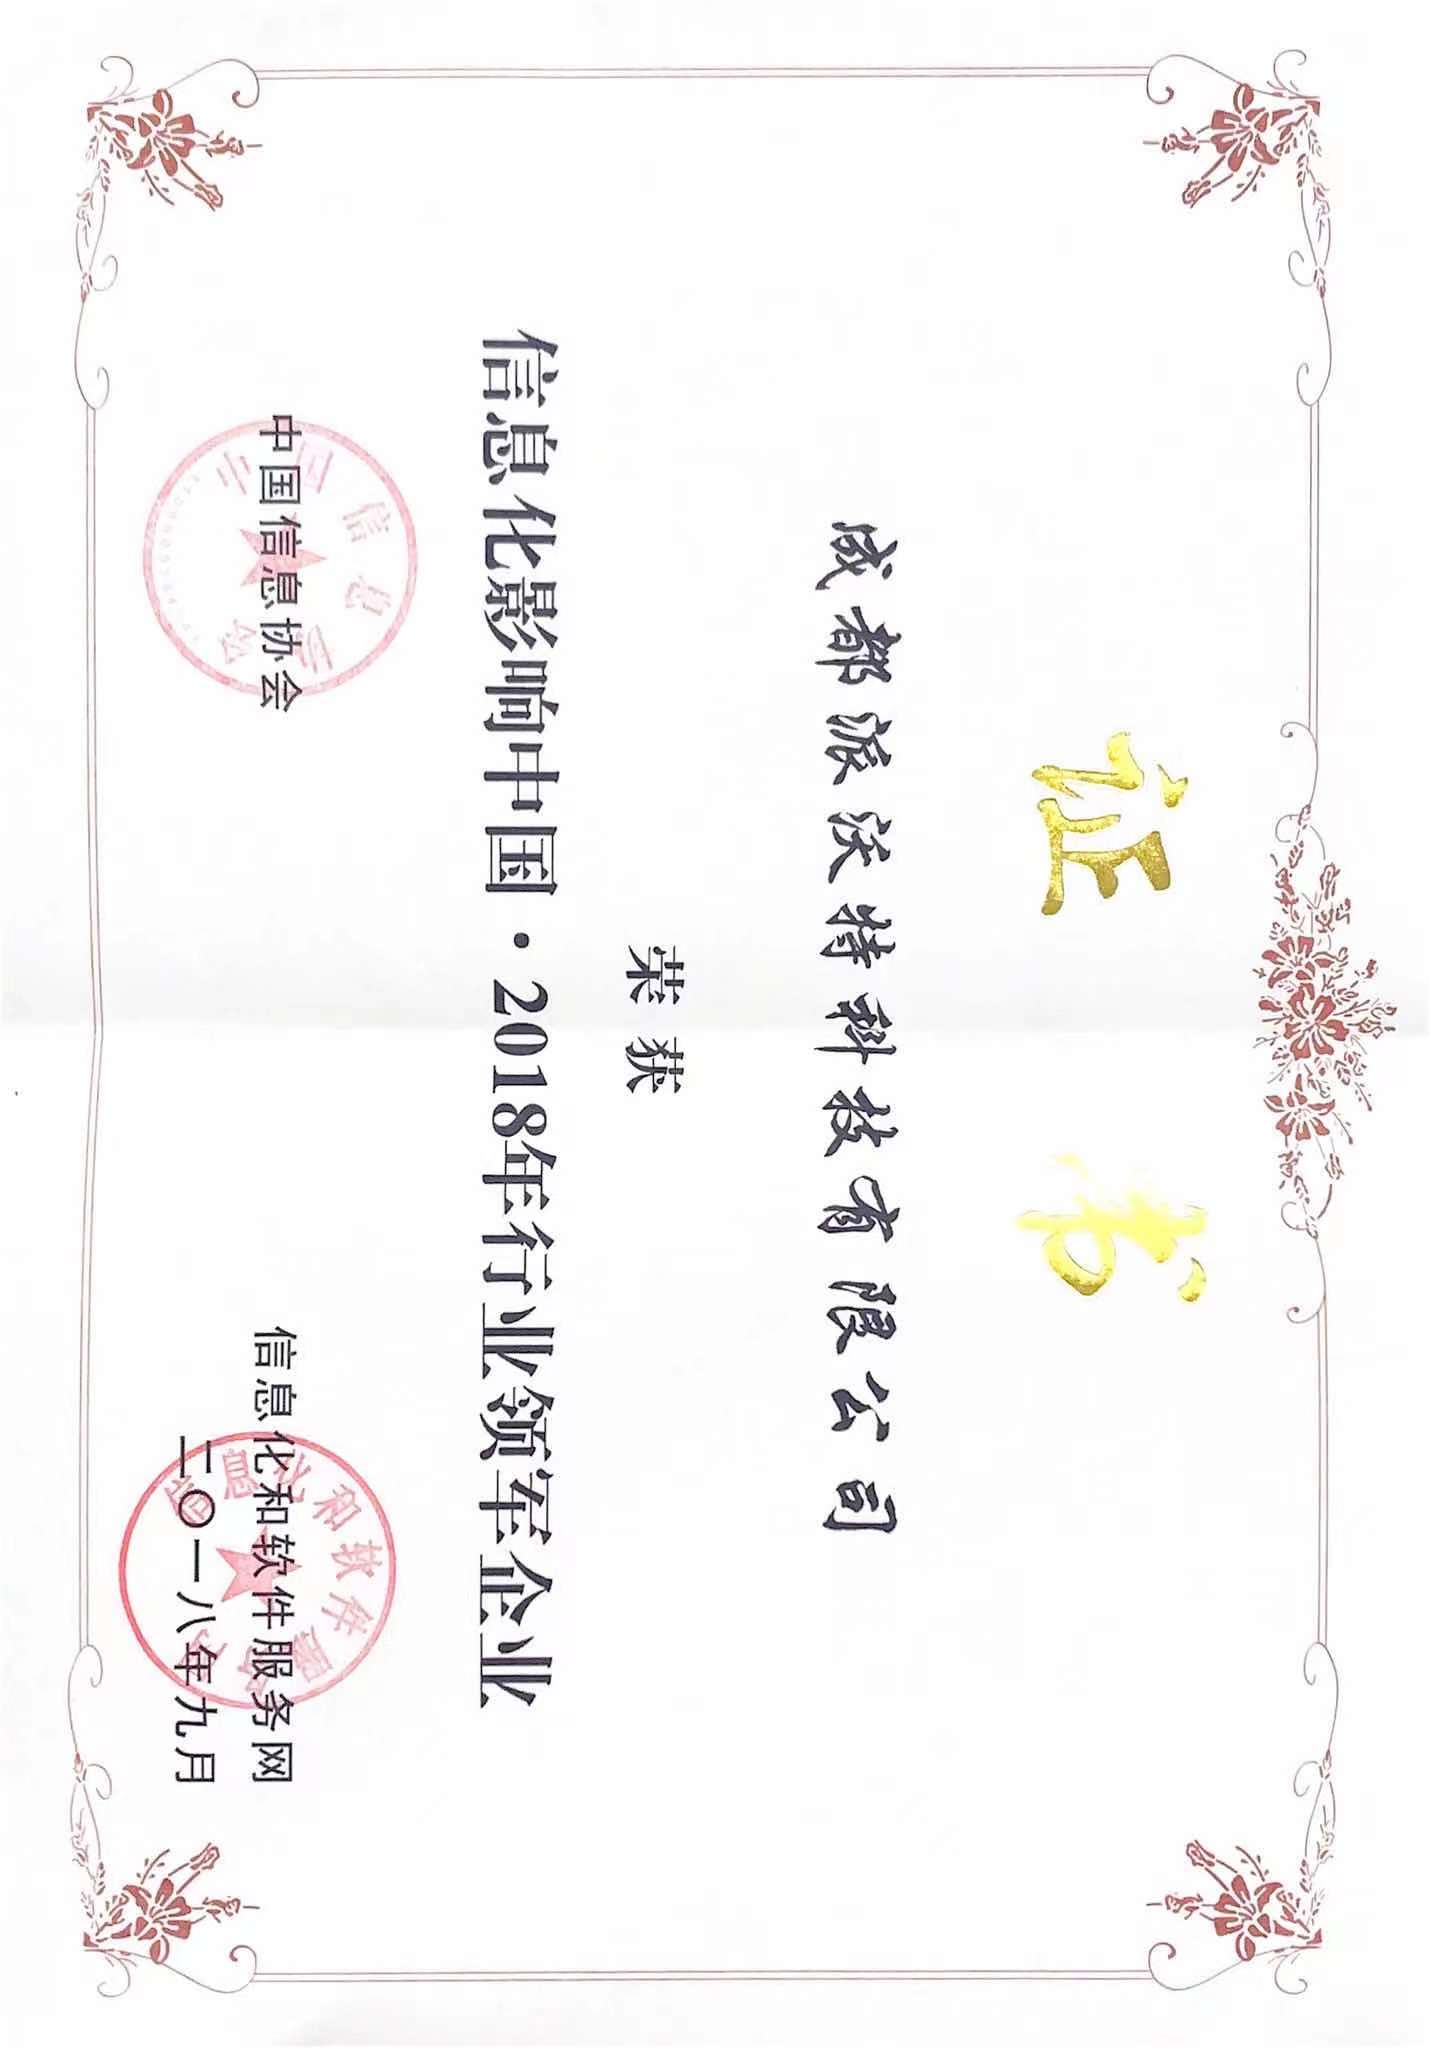 证书
成都派沃特科技有限公司
荣获
信息化影响中国·2018年行业领军企业
中国信息协会
信息化和软件服务网
二〇一八年九月